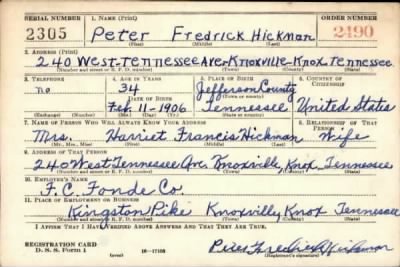 SERIAL NUMBER 1. NAME (Print) ORDER NUMBER
2305 Peter Fredrick Hickman 2490
(First) (Middle) (Last)
2. ADDRESS (Print)
240 West-Tennessee Ave-Knoxville-Knox Tennessee
(Number and street or R. F. D. number) (Town) (County) (State)
3. TELEPHONE 4. AGE IN YEARS 5. PLACE OF BIRTH 6. COUNTRY OF CITIZENSHIP
no 34 Jefferson County
DATE OF BIRTH
Feb. 11-1906 Tennessee United States
(Mo.) (Day) (Yr.) (State or country)
7. NAME OF PERSON WHO WILL ALWAYS KNOW YOUR ADDRESS 8. RELATIONSHIP OF THAT PERSON
Mrs. Harriet Francis Hickman Wife
(Mr., Mrs., Miss) (First) (Middle) (Last)
9. ADDRESS OF THAT PERSON
240 West Tennessee Ave. Knoxville, Knox, Tennessee
(Number and street or R. F. D. number) (Town) (County) (State)
10. EMPLOYER'S NAME
F. C. Fonde Co.
11. PLACE OF EMPLOYMENT OR BUSINESS
Kingston Pike Knoxville, Knox Tennessee
(Number and street or R. F. D. number) (Town) (County) (State)
I AFFIRM THAT I HAVE VERIFIED ABOVE ANSWERS AND THAT THEY ARE TRUE.
REGISTRATION CARD
D. S. S. Form 1 (over) 16-17105 Peter Fredrick Hickman
(Registrant's signature)